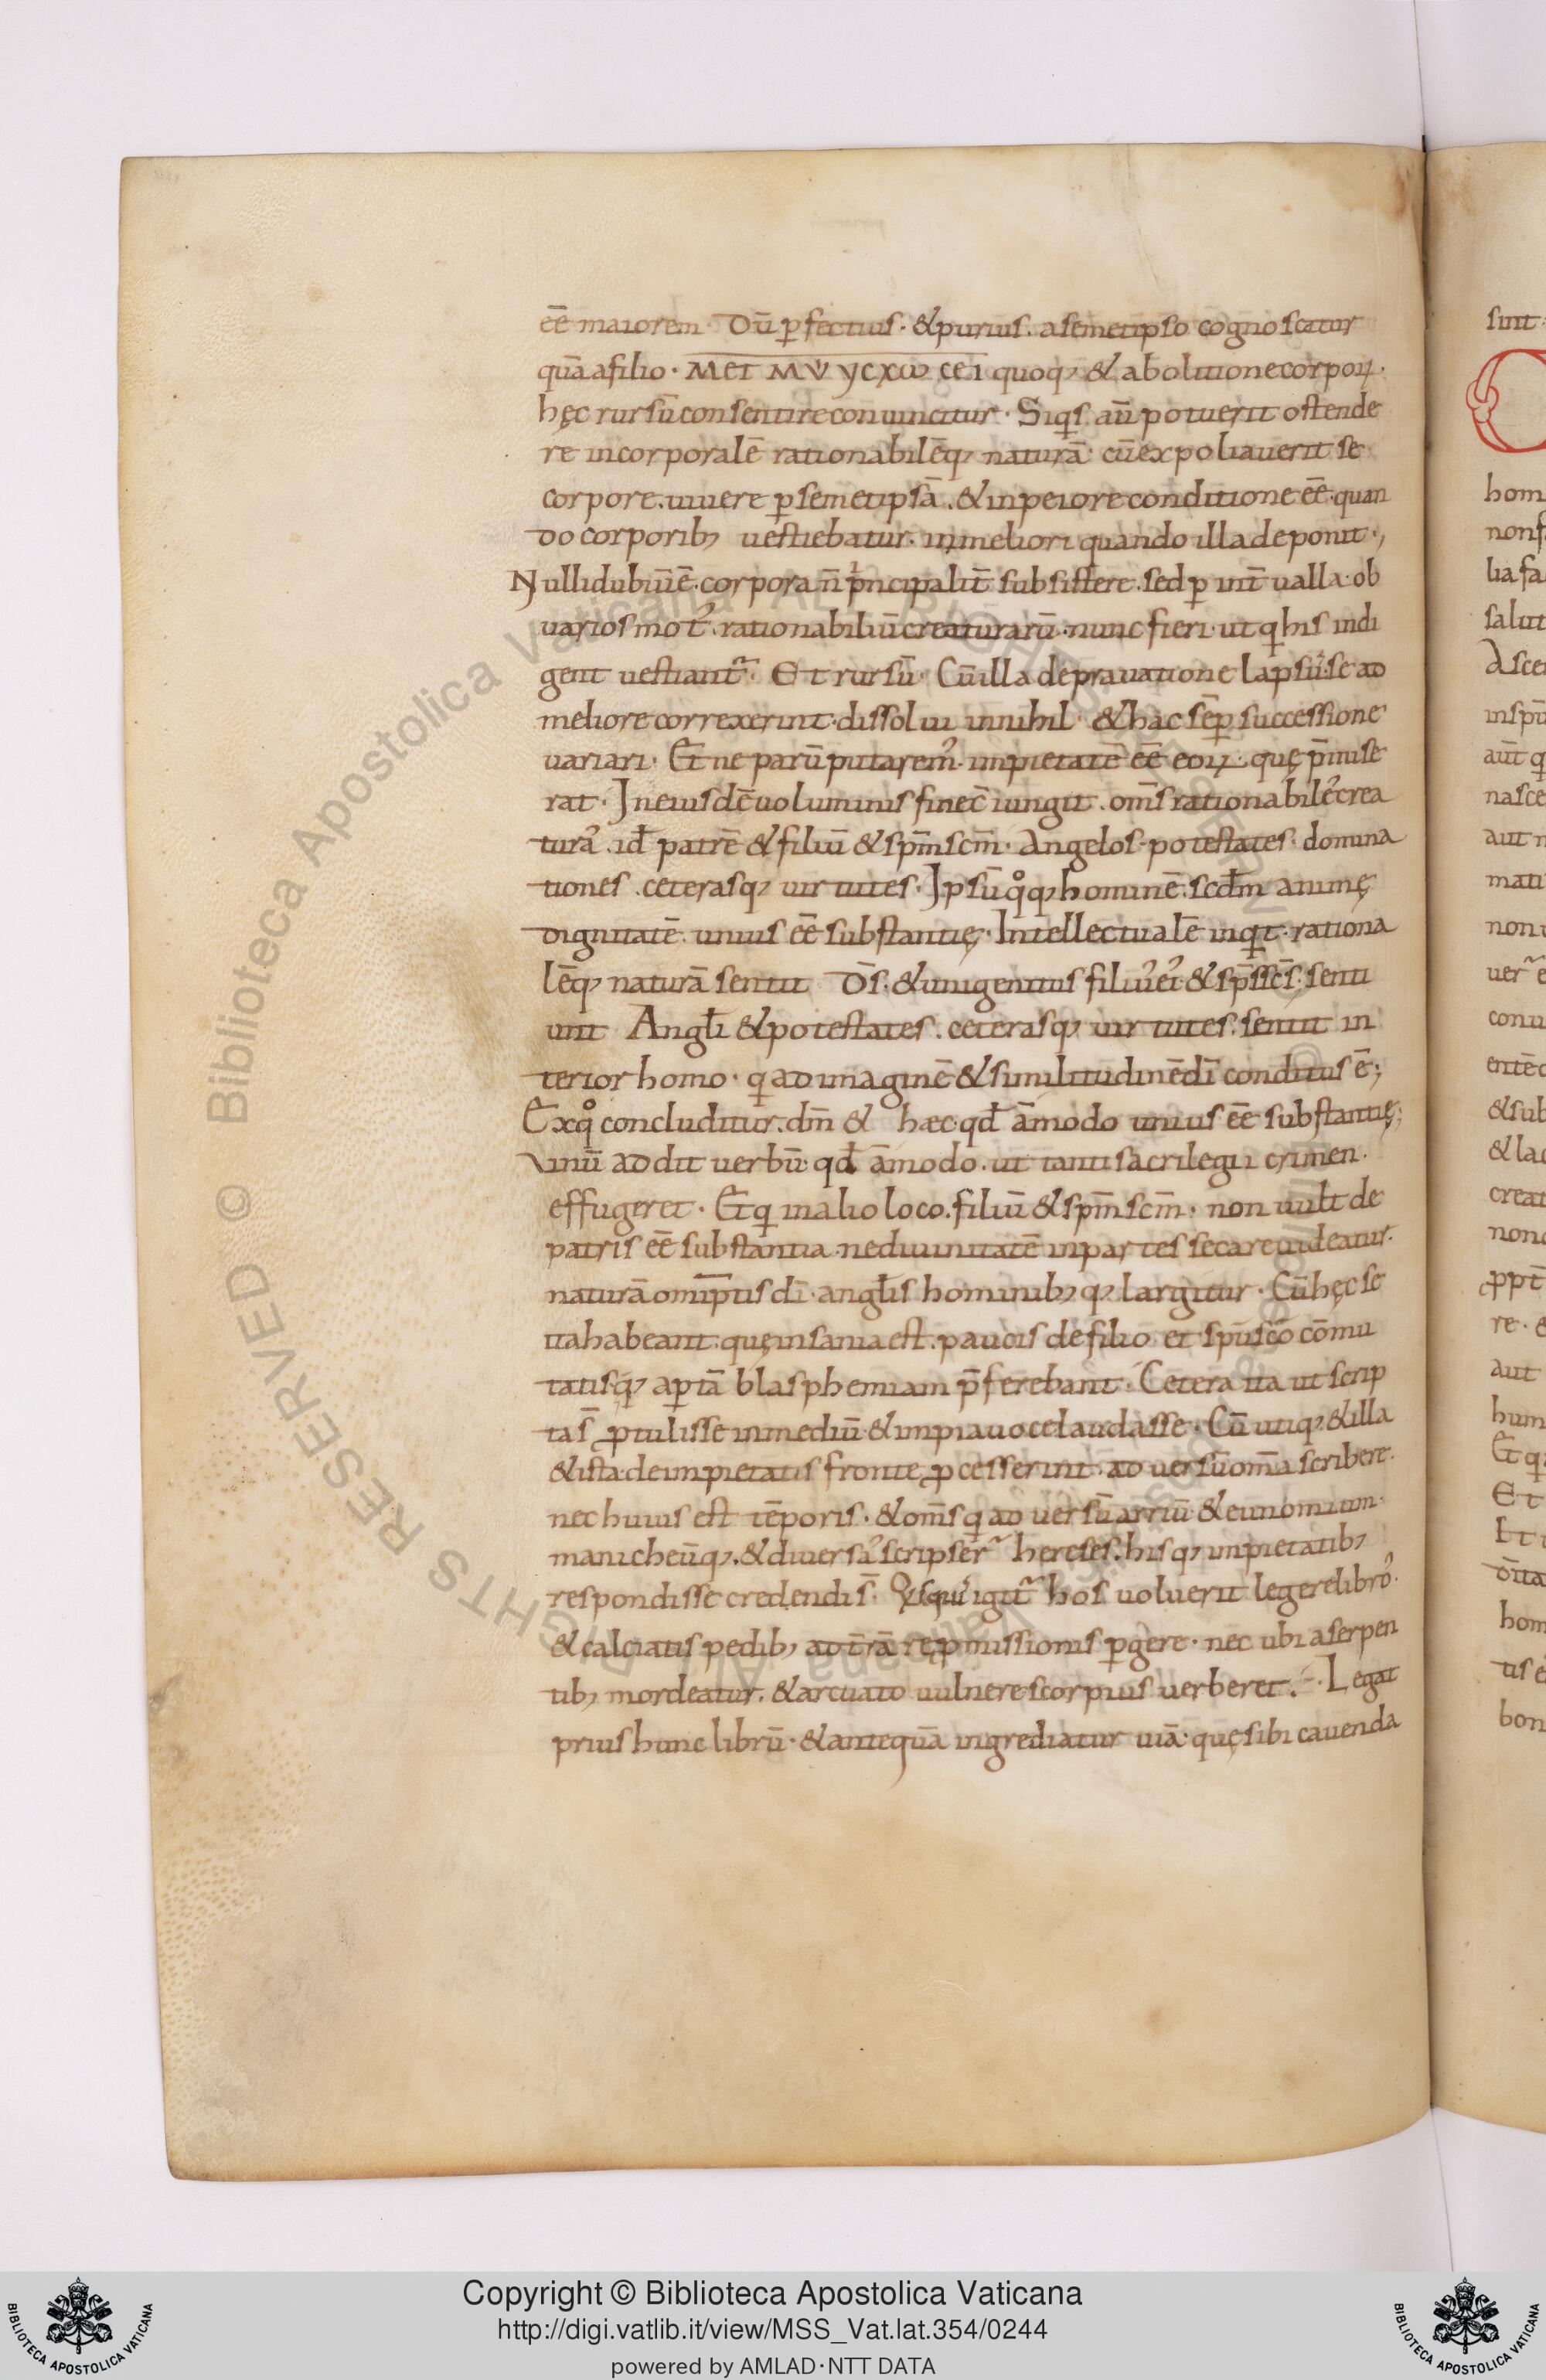 eē maiorem. Dū ꝑfectius. &purius. asemetipso cognoscatur
quā afilio. Met MV ycxω cei quoq; & abolitione corpoꝝ.
hęc rursū consentire conuincitur. Siqͥs aū potuerit ostende
re incorporalē rationabilēq; naturā. cū expoliauerit se
corpore. uiuere ꝑ semetipsā. & inpeiore conditione eē. quan
do corporib; uestiebatur. inmeliori quando illa deponit.,
Nulli dubiū ē. corpora n̄ pͥncipalit̄ subsistere. sed ꝑ int̄ualla. ob
varios mot᾿. rationabiliū creaturarū. nunc fieri. ut qͥ his indi
gent uestiant᷑. Et rursū. Cū illa deprauatione lapsuū. se ad
meliore correxerint. dissolui innihil. & hac sēꝑ successione
uariari. Et ne parū putarem᾿. impietatē eē eoꝝ. quę p̄mise
rat. In eiusdē uoluminis fine c̄iungit. om̄s rationabile᾿ crea
tura᾿. id̄ patrē & filiū & sp̄m sc̄m. Angelos. potestates. domina
tiones. ceterasq; uirtutes. Ipsū qͦq; hominē. scd̄m animę
dignitatē. unius eē substantię. Intellectualē inqͥt. rationa
lēq; naturā sentit Ds̄. & unigenitus filiu᾿ ei᾿ & sp̄s sc̄s. senti
unt Angl̄i & potestates. ceterasq; uirtutes. sentit in
terior homo. qͥ ad imaginē & similitudinē dī conditus ē;
Ex qͦ concluditur. dm̄ & hæc. qd̄ āmodo unius eē substantię;
Vnū addit uerbū. qd̄ āmodo. ut tanti sacrilegii crimen.
effugeret. Et qͥ in alio loco. filiū & sp̄m sc̄m. non uult de
patris eē substantia. ne diuinitatē inpartes secare uideatur.
naturā omīptis dī. angl̄is hominib; q; largitur. Cū hęc se
ita habeant. quę insania est. paucis de filio et spū scō cōmu
tatisq; aꝑtā blasphemiam p̄ferebant. Cetera ita ut scrip
ta s̄ ꝓtulisse inmediū & impia uoce laudasse. Cū utiq; & illa
& ista. deimpietatis fronte ꝓcesserint. adversū om̄a scribere.
nec huius est tēporis. & om̄s qͥ adversū arriū & eunomium.
manicheūq;. & diuersa᾿ scripser᷑ hereses. hisq; impietatib;
respondisse credendi s̄. Qͥsquis igit᷑ hos uoluerit legere libro᾿.
& calciatis pedib; ad t̄rā reꝓmissionis ꝑgere. nec ubi aserpen
tib; mordeatur. & arcuato uulnere scorpius uerberet. Legat
prius hunc librū. & antequā ingrediatur uiā. quę sibi cauenda
sint
hom
non s
lia fa
salut
Asce
inspū
aūt q
nasce
aut n
mati
non
uer᷑ e
conu
entē
& sub
& la
creat
non
ꝓpt̄
re. &
aut
hum
Et q
Et
Et
hom
tis
bon
© Biblioteca Apostolica Vaticana ALL RIGHTS RESERVED
Copyright © Biblioteca Apostolica Vaticana
http://digi.vatlib.it/view/MSS_Vat.lat.354/0244
powered by AMLAD·NTT DATA
BIBLIOTECA APOSTOLICA VATICANA
BIBLIOTECA APOSTOLICA VATICANA